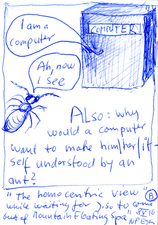 I am a
computer
COMPUTER
Ah, now
i see
Also: why
would a computer
want to make him/her/it-
self understood by an
ant?
"The homocentric view"
while waiting for J. so to come
out of Mountain Floating Spa